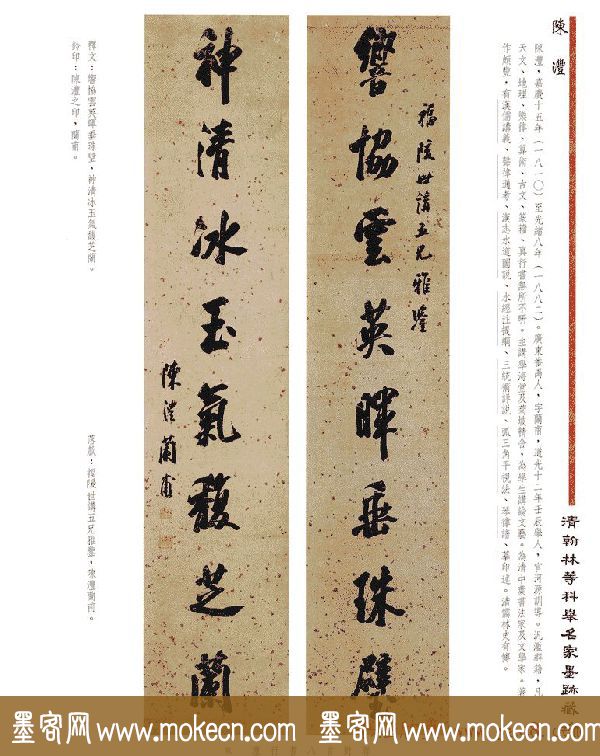 陳澧
陳澧，嘉慶十五年（一八一〇）至光緒八年（一八八二）。廣東番禺人，字蘭甫，道光十二年壬辰舉人，官河源訓導。汎濫群籍，凡
天文、地理、樂律、算術、古文、篆籀、真行書無所不研。主講學海堂及菊坡精舍，為學生講論文藝。為清中葉書法家及文學家。著
作頗豐，有漢儒講義、聲律通考、漢志水道圖說、水經注提綱、三統術詳說、弧三角平視法、琴律譜、摹印述。清儒林史有傳。
清翰林等科舉名家墨跡
福陔世講五兄雅鑒
響協雲英暉垂珠璧
神清冰玉氣馥芝蘭
陳澧蘭甫
釋文：響協雲英暉垂珠璧，神清冰玉氣馥芝蘭。
鈐印：陳澧之印，蘭甫。
落款：福陔世講五兄雅鑒，陳澧蘭甫。
墨客网 www.mokecn.com 墨客网 www.mokecn.com